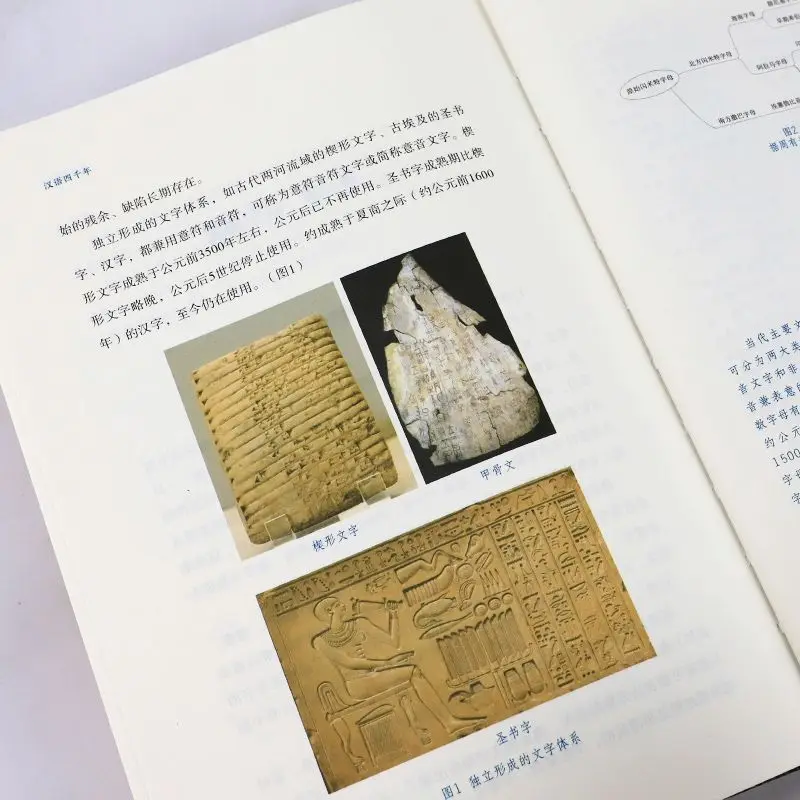 汉语四千年
始的残余、缺陷长期存在。
独立形成的文字体系，如古代两河流域的楔形文字、古埃及的圣书
字、汉字，都兼用意符和音符，可称为意符音符文字或简称意音文字。楔
形文字成熟于公元前3500年左右，公元后已不再使用。圣书字成熟期比楔
形文字略晚，公元后5世纪停止使用。约成熟于夏商之际（约公元前1600
年）的汉字，至今仍在使用。（图1）
楔形文字
甲骨文
圣书字
图1 独立形成的文字体系
原始闪米特字母
北方闪米特字母
南方撒巴字母
迦南字母
阿拉马字母
图2
据周有
当代主要文
可分为两大类
音文字和非
音兼表意的
数字母有
约公元
1500
字母
字